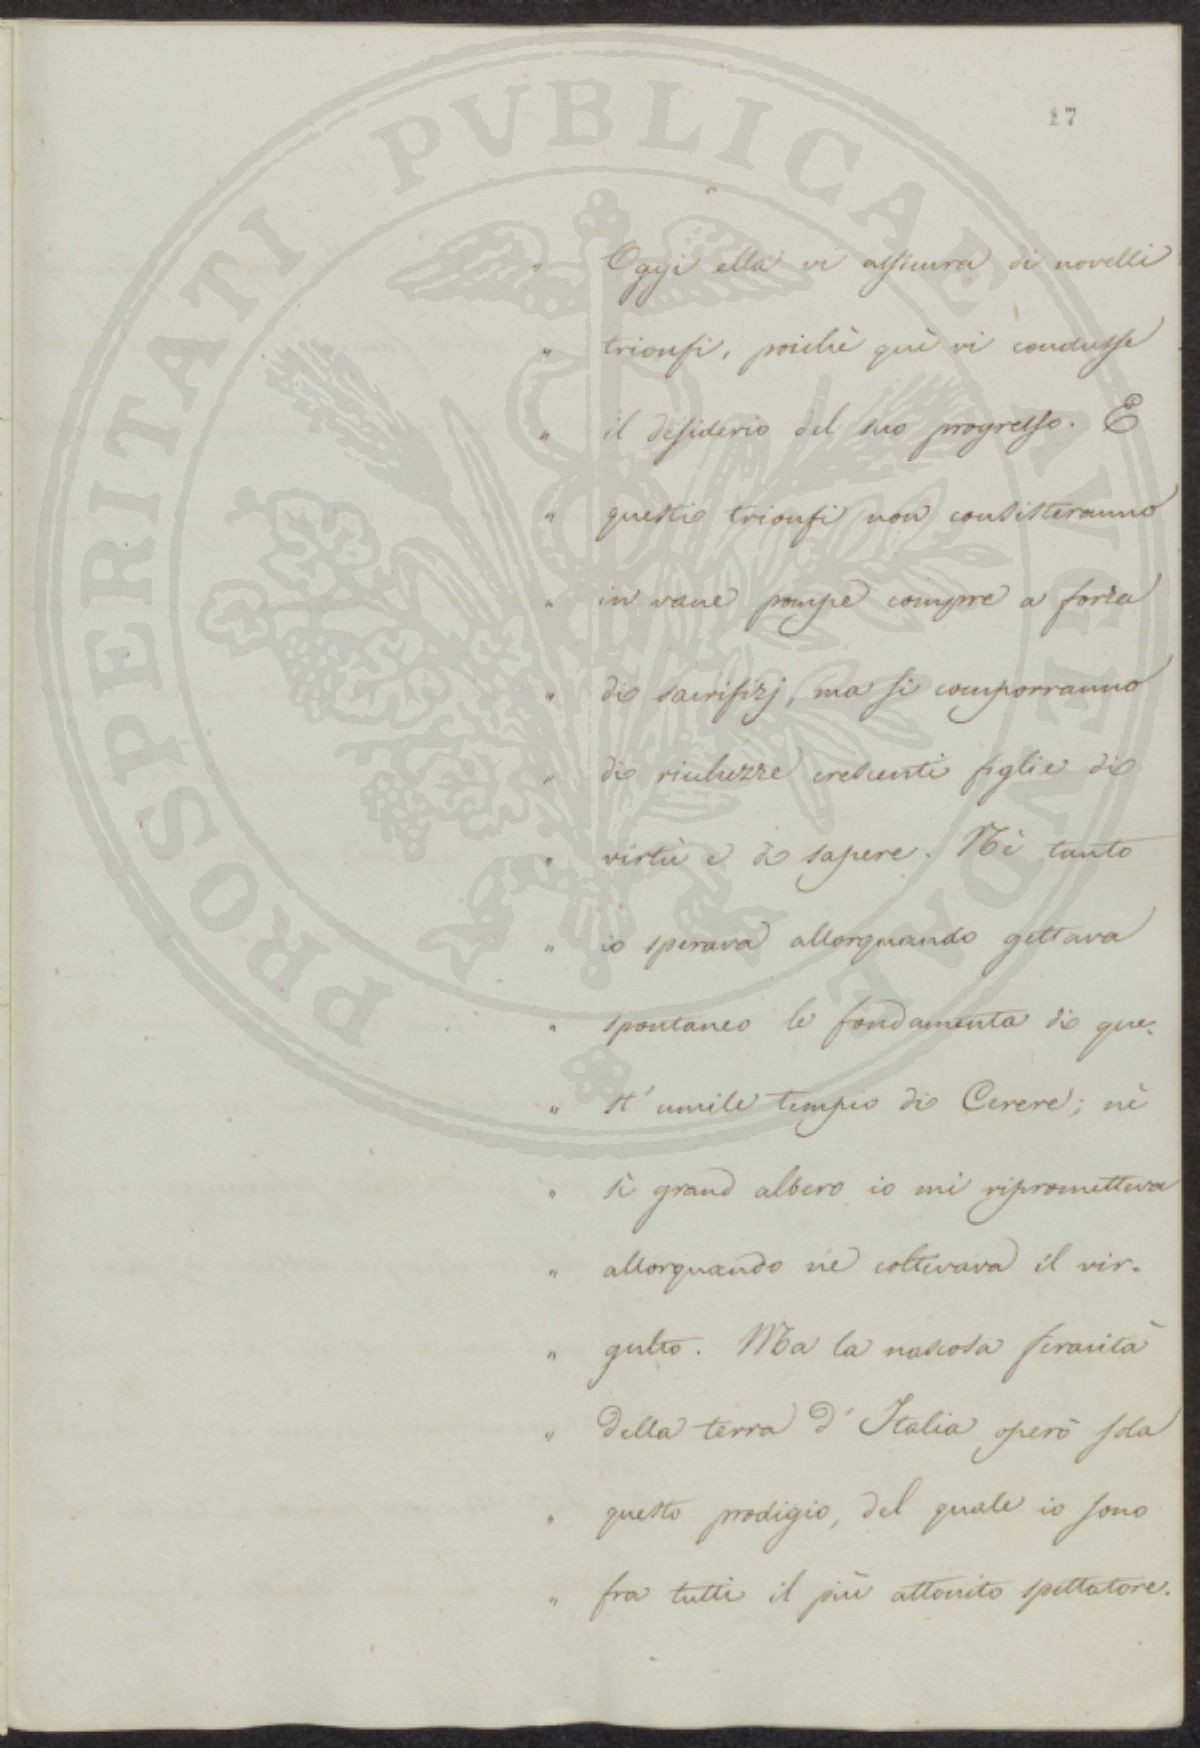 17
" Oggi ella vi assicura di novelli
" trionfi, poichè quì vi condusse
" il desiderio del suo progresso. E
" questi trionfi non consisteranno
" in vane pompe compre a forza
" di sacrifizj, ma si comporranno
" di ricchezze crescenti figlie di
" virtù e di sapere. Nè tanto
" io sperava allorquando gettava
" spontaneo le fondamenta di que-
" st' umile tempio di Cerere; nè
" sì grand albero io mi riprometteva
" allorquando ne coltivava il vir-
" gulto. Ma la nascosa feracità
" della terra d' Italia operò sola
" questo prodigio, del quale io sono
" fra tutti il più attonito spettatore.
PROSPERITATI PVBLICAE AVGENDAE